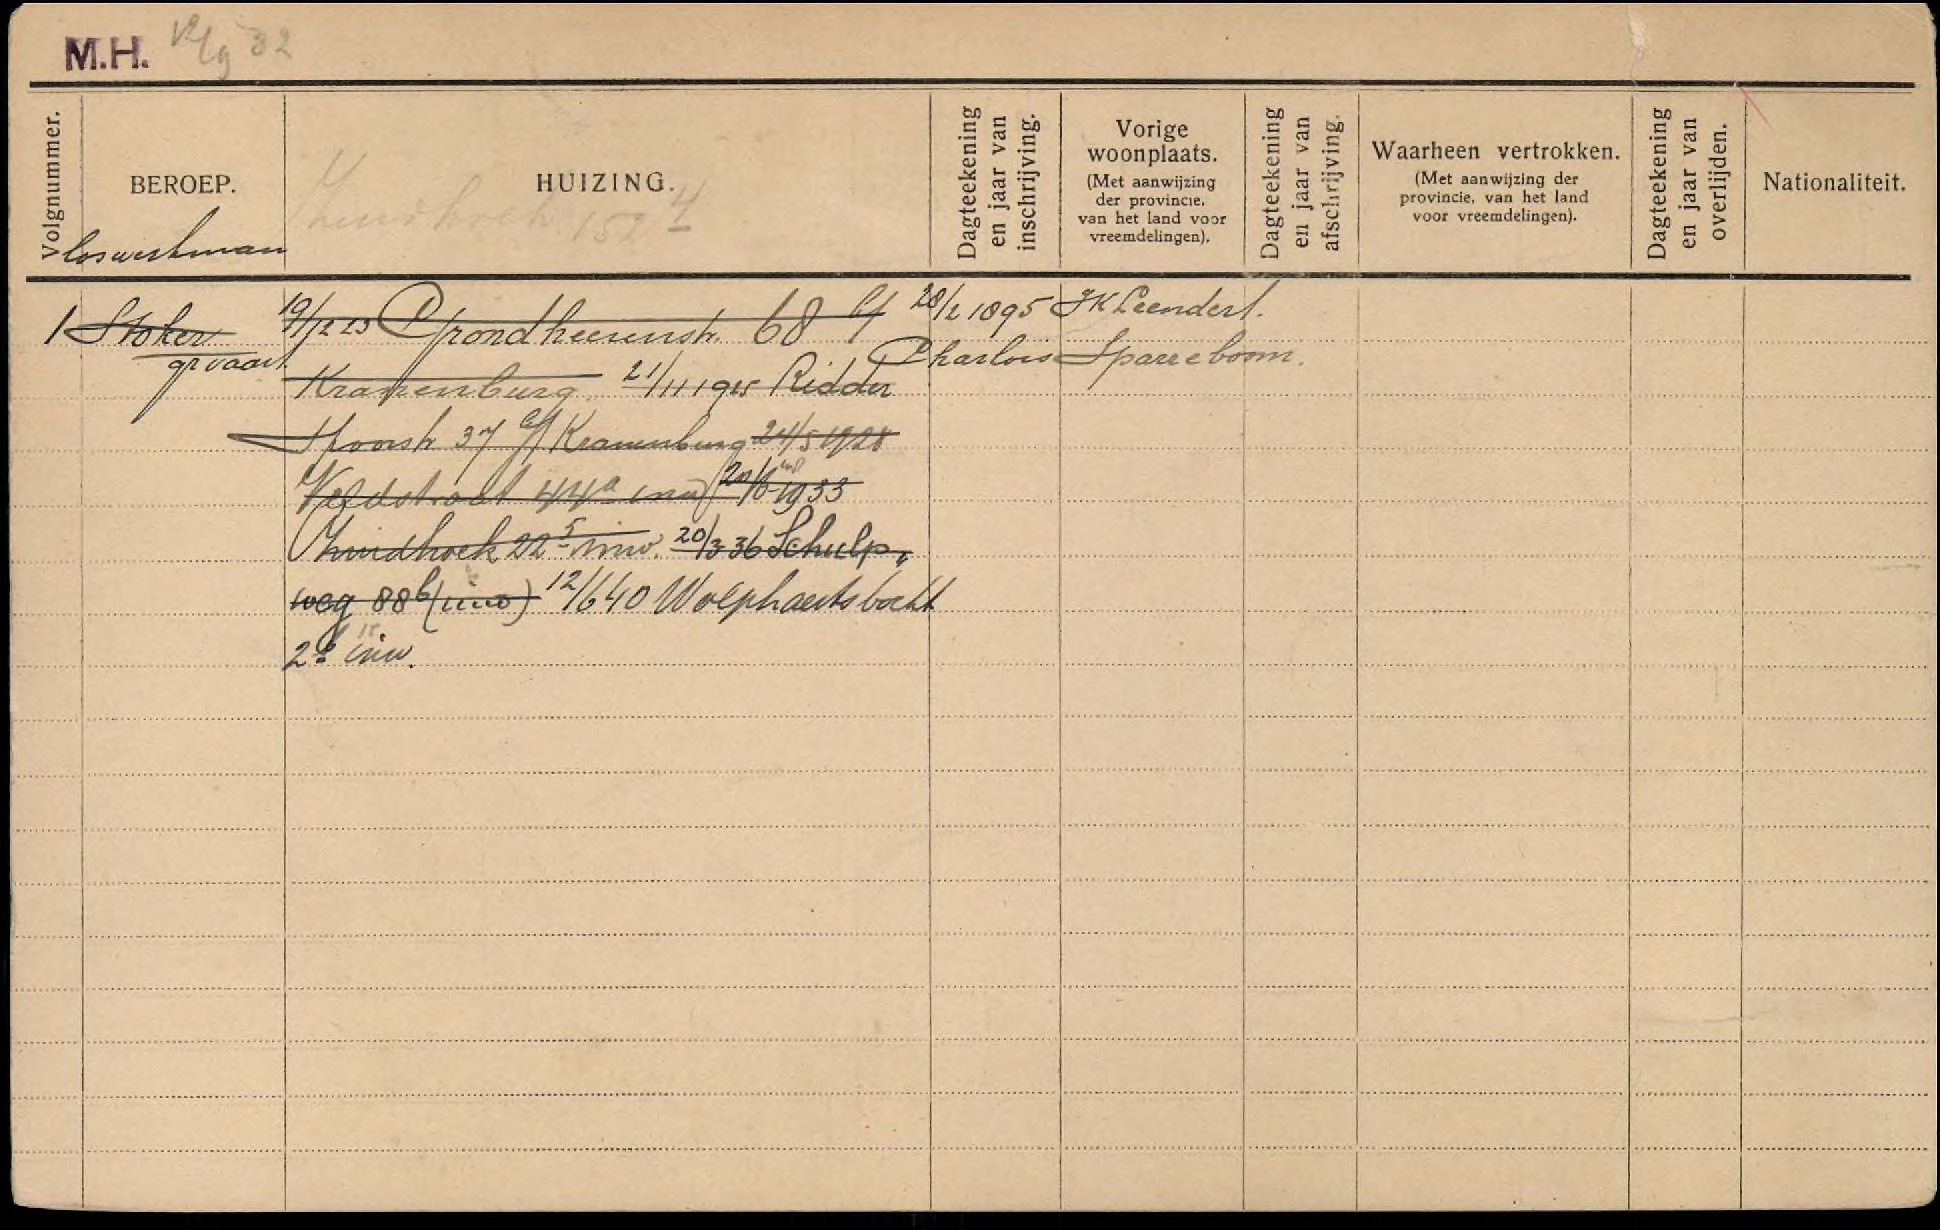 M.H. 32
Volgnummer.
BEROEP.
HUIZING.
Dagteekening
en jaar van
inschrijving.
Vorige
woonplaats.
(Met aanwijzing
der provincie,
van het land voor
vreemdelingen).
Dagteekening
en jaar van
afschrijving.
Waarheen vertrokken.
(Met aanwijzing der
provincie, van het land
voor vreemdelingen).
Dagteekening
en jaar van
overlijden.
Nationaliteit.
Zuidhoek 152
loswerkman
1 Stoker 19/12 23 Grondheerenstr. 68 c/f 28/2 1895 JK Leendert.
gr vaart Charlois Sparreboom.
Kranenburg. 21/11 1925 Ridder
Spoorstr 37 c/f Kranenburg 24/5 1928
Veldstraat 44a inw 20/6 1933
Zuidhoek 22 inw. 20/3 36 Schulp„
weg 88b (inw) 12/6 40 Wolphaertsbocht
inw.